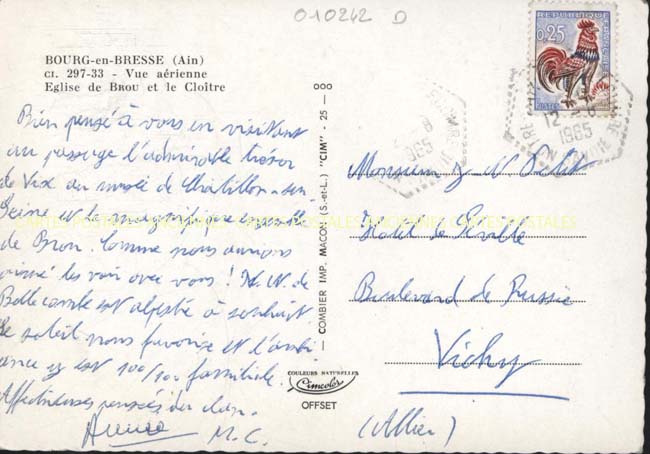 010242 D
BOURG-en-BRESSE (Ain)
CI. 297-33 - Vue aérienne
Eglise de BROU et le Cloître
Bien pensé à vous en visitant
au passage l'admirable trésor
de Vix au musée de Châtillon-sur
Seine et la magnifique
de Brou. Comme nous aurions
aimé les voir avec vous ! N. N de
Bellecombe est alpestre à souhait
le soleil nous favorise et l'ambi
ance y est 100/100 familiale.
Affectueuses pensées du clan.
M.C.
COMBIER IMP. MACON (S.-et-L.) "CIM" - 25 - OOO
COULEURS NATURELLES
Cimcolor
OFFSET
REPUBLIQUE FRANÇAISE
0,25
POSTES
12 - 8
1965
8
1965
Monsieur
Hôtel de Séville
Boulevard de Russie
Vichy
(Allier)
CARTES POSTALES ANCIENNES CARTES POSTALES